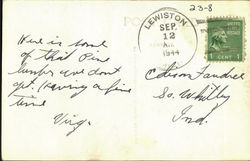 23-8
LEWISTON
SEP
12
AM
1944
Here is some
of that Pine
lumber we don't
get. Having a fine
time
Virg.
Edison Fandree
So. Whitley
Ind.
1 CENT 1